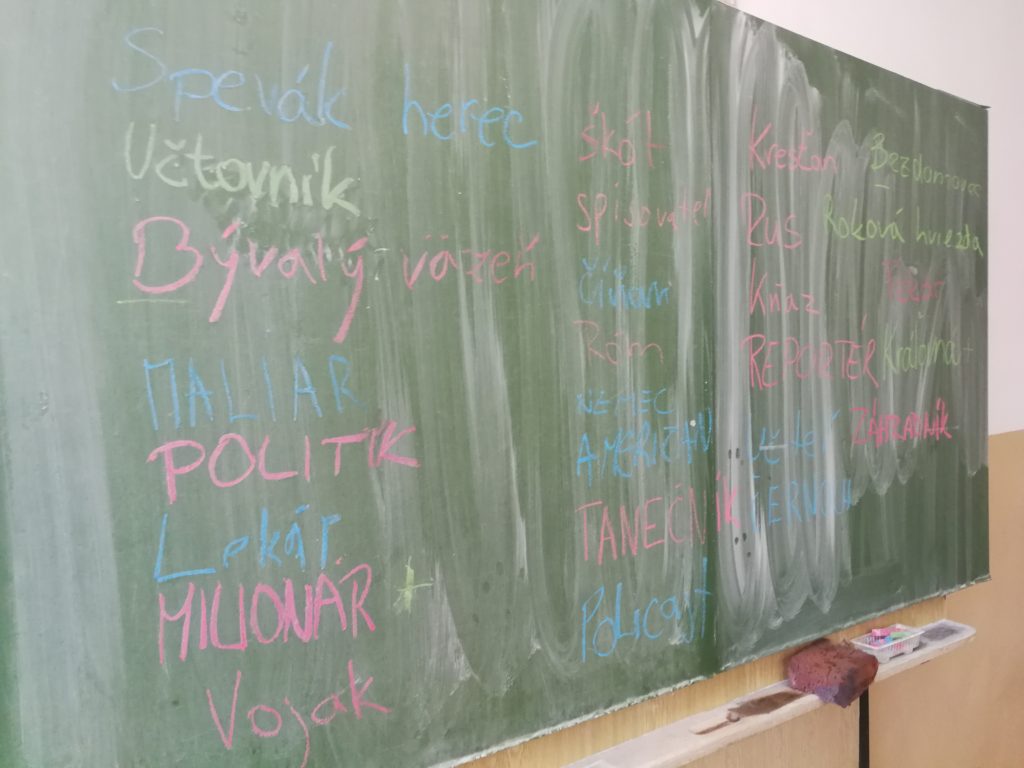 Spevák herec
Učtovník
Bývalý väzeň
MALIAR
POLITIK
Lekár
MILIONÁR +
Vojak
škót
spisovateľ
Číňan
Róm
NEMEC
AMERIČAN
TANEČNÍK
POLICAJT
Kresťan
Rus
Kňaz
REPORTÉR
Učiteľ
ČERNOCH
Bezdomovec
Roková hviezda
ZÁHRADNÍK